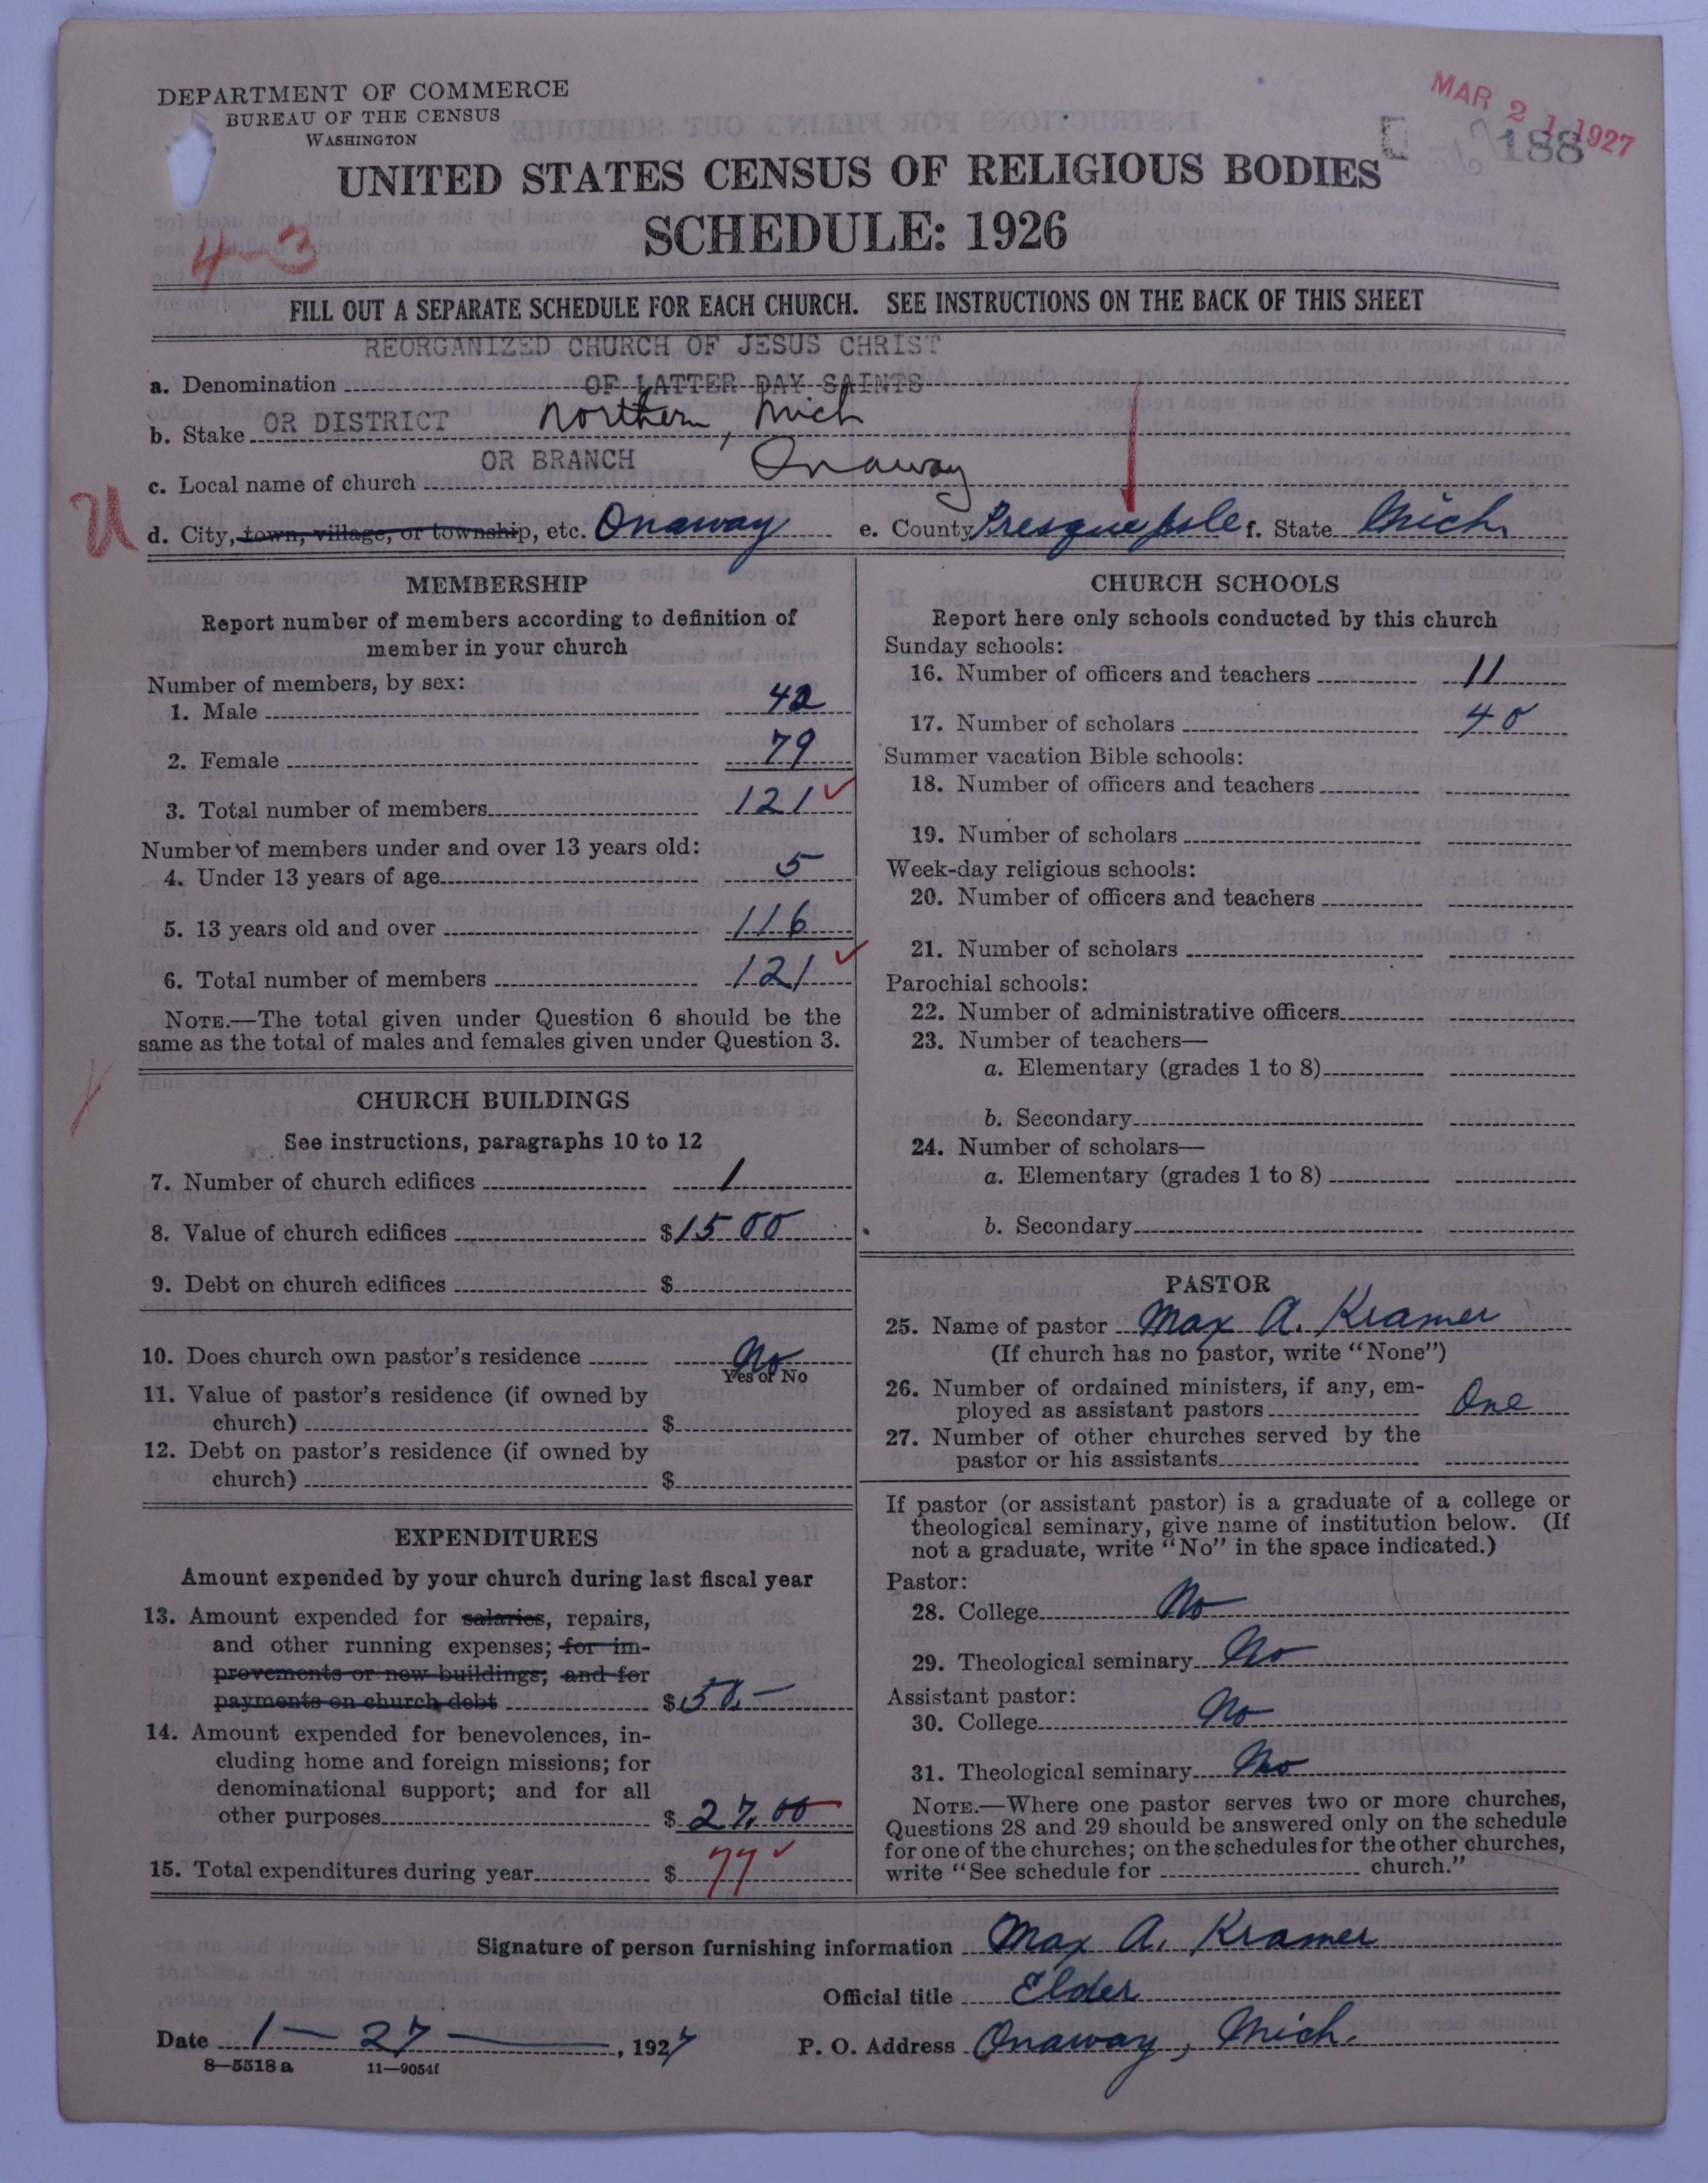 DEPARTMENT OF COMMERCE
BUREAU OF THE CENSUS
WASHINGTON
MAR 21 1927
188
UNITED STATES CENSUS OF RELIGIOUS BODIES
SCHEDULE: 1926
4-3
FILL OUT A SEPARATE SCHEDULE FOR EACH CHURCH. SEE INSTRUCTIONS ON THE BACK OF THIS SHEET
REORGANIZED CHURCH OF JESUS CHRIST
a. Denomination OF LATTER DAY SAINTS
b. Stake OR DISTRICT Northern, Mich
OR BRANCH
c. Local name of church Onaway
U
d. City, town, village, or township, etc. Onaway e. County Presque Isle f. State Mich.
MEMBERSHIP
Report number of members according to definition of
member in your church
Number of members, by sex:
1. Male 42
2. Female 79
3. Total number of members 121 ✓
Number of members under and over 13 years old:
4. Under 13 years of age 5
5. 13 years old and over 116
6. Total number of members 121 ✓
NOTE.—The total given under Question 6 should be the
same as the total of males and females given under Question 3.
CHURCH BUILDINGS
See instructions, paragraphs 10 to 12
7. Number of church edifices 1
8. Value of church edifices $1500
9. Debt on church edifices $
10. Does church own pastor's residence No
Yes or No
11. Value of pastor's residence (if owned by
church) $
12. Debt on pastor's residence (if owned by
church) $
EXPENDITURES
Amount expended by your church during last fiscal year
13. Amount expended for salaries, repairs,
and other running expenses; for im-
provements or new buildings; and for
payments on church debt $50.—
14. Amount expended for benevolences, in-
cluding home and foreign missions; for
denominational support; and for all
other purposes $27.00
15. Total expenditures during year $77 ✓
CHURCH SCHOOLS
Report here only schools conducted by this church
Sunday schools:
16. Number of officers and teachers 11
17. Number of scholars 40
Summer vacation Bible schools:
18. Number of officers and teachers
19. Number of scholars
Week-day religious schools:
20. Number of officers and teachers
21. Number of scholars
Parochial schools:
22. Number of administrative officers
23. Number of teachers—
a. Elementary (grades 1 to 8)
b. Secondary
24. Number of scholars—
a. Elementary (grades 1 to 8)
b. Secondary
PASTOR
25. Name of pastor Max A. Kramer
(If church has no pastor, write "None")
26. Number of ordained ministers, if any, em-
ployed as assistant pastors One
27. Number of other churches served by the
pastor or his assistants
If pastor (or assistant pastor) is a graduate of a college or
theological seminary, give name of institution below. (If
not a graduate, write "No" in the space indicated.)
Pastor:
28. College No
29. Theological seminary No
Assistant pastor:
30. College No
31. Theological seminary No
NOTE.—Where one pastor serves two or more churches,
Questions 28 and 29 should be answered only on the schedule
for one of the churches; on the schedules for the other churches,
write "See schedule for church."
Signature of person furnishing information Max A. Kramer
Official title Elder
Date 1 — 27 —, 1927 P. O. Address Onaway, Mich.
8—5518 a 11—9054f